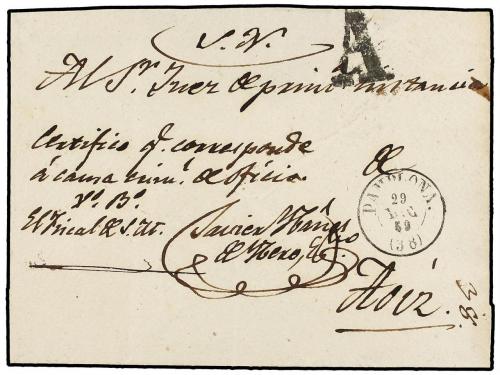 S. N.
A
Al Sr. Juez de prim. instancia
Certifico q. corresponde
á causa crim.l de oficio
de
Vo. Bo.
El Fiscal de S. M.
Javier
de
PAMPLONA
29
DIC
59
(38)
Aoiz.
38.